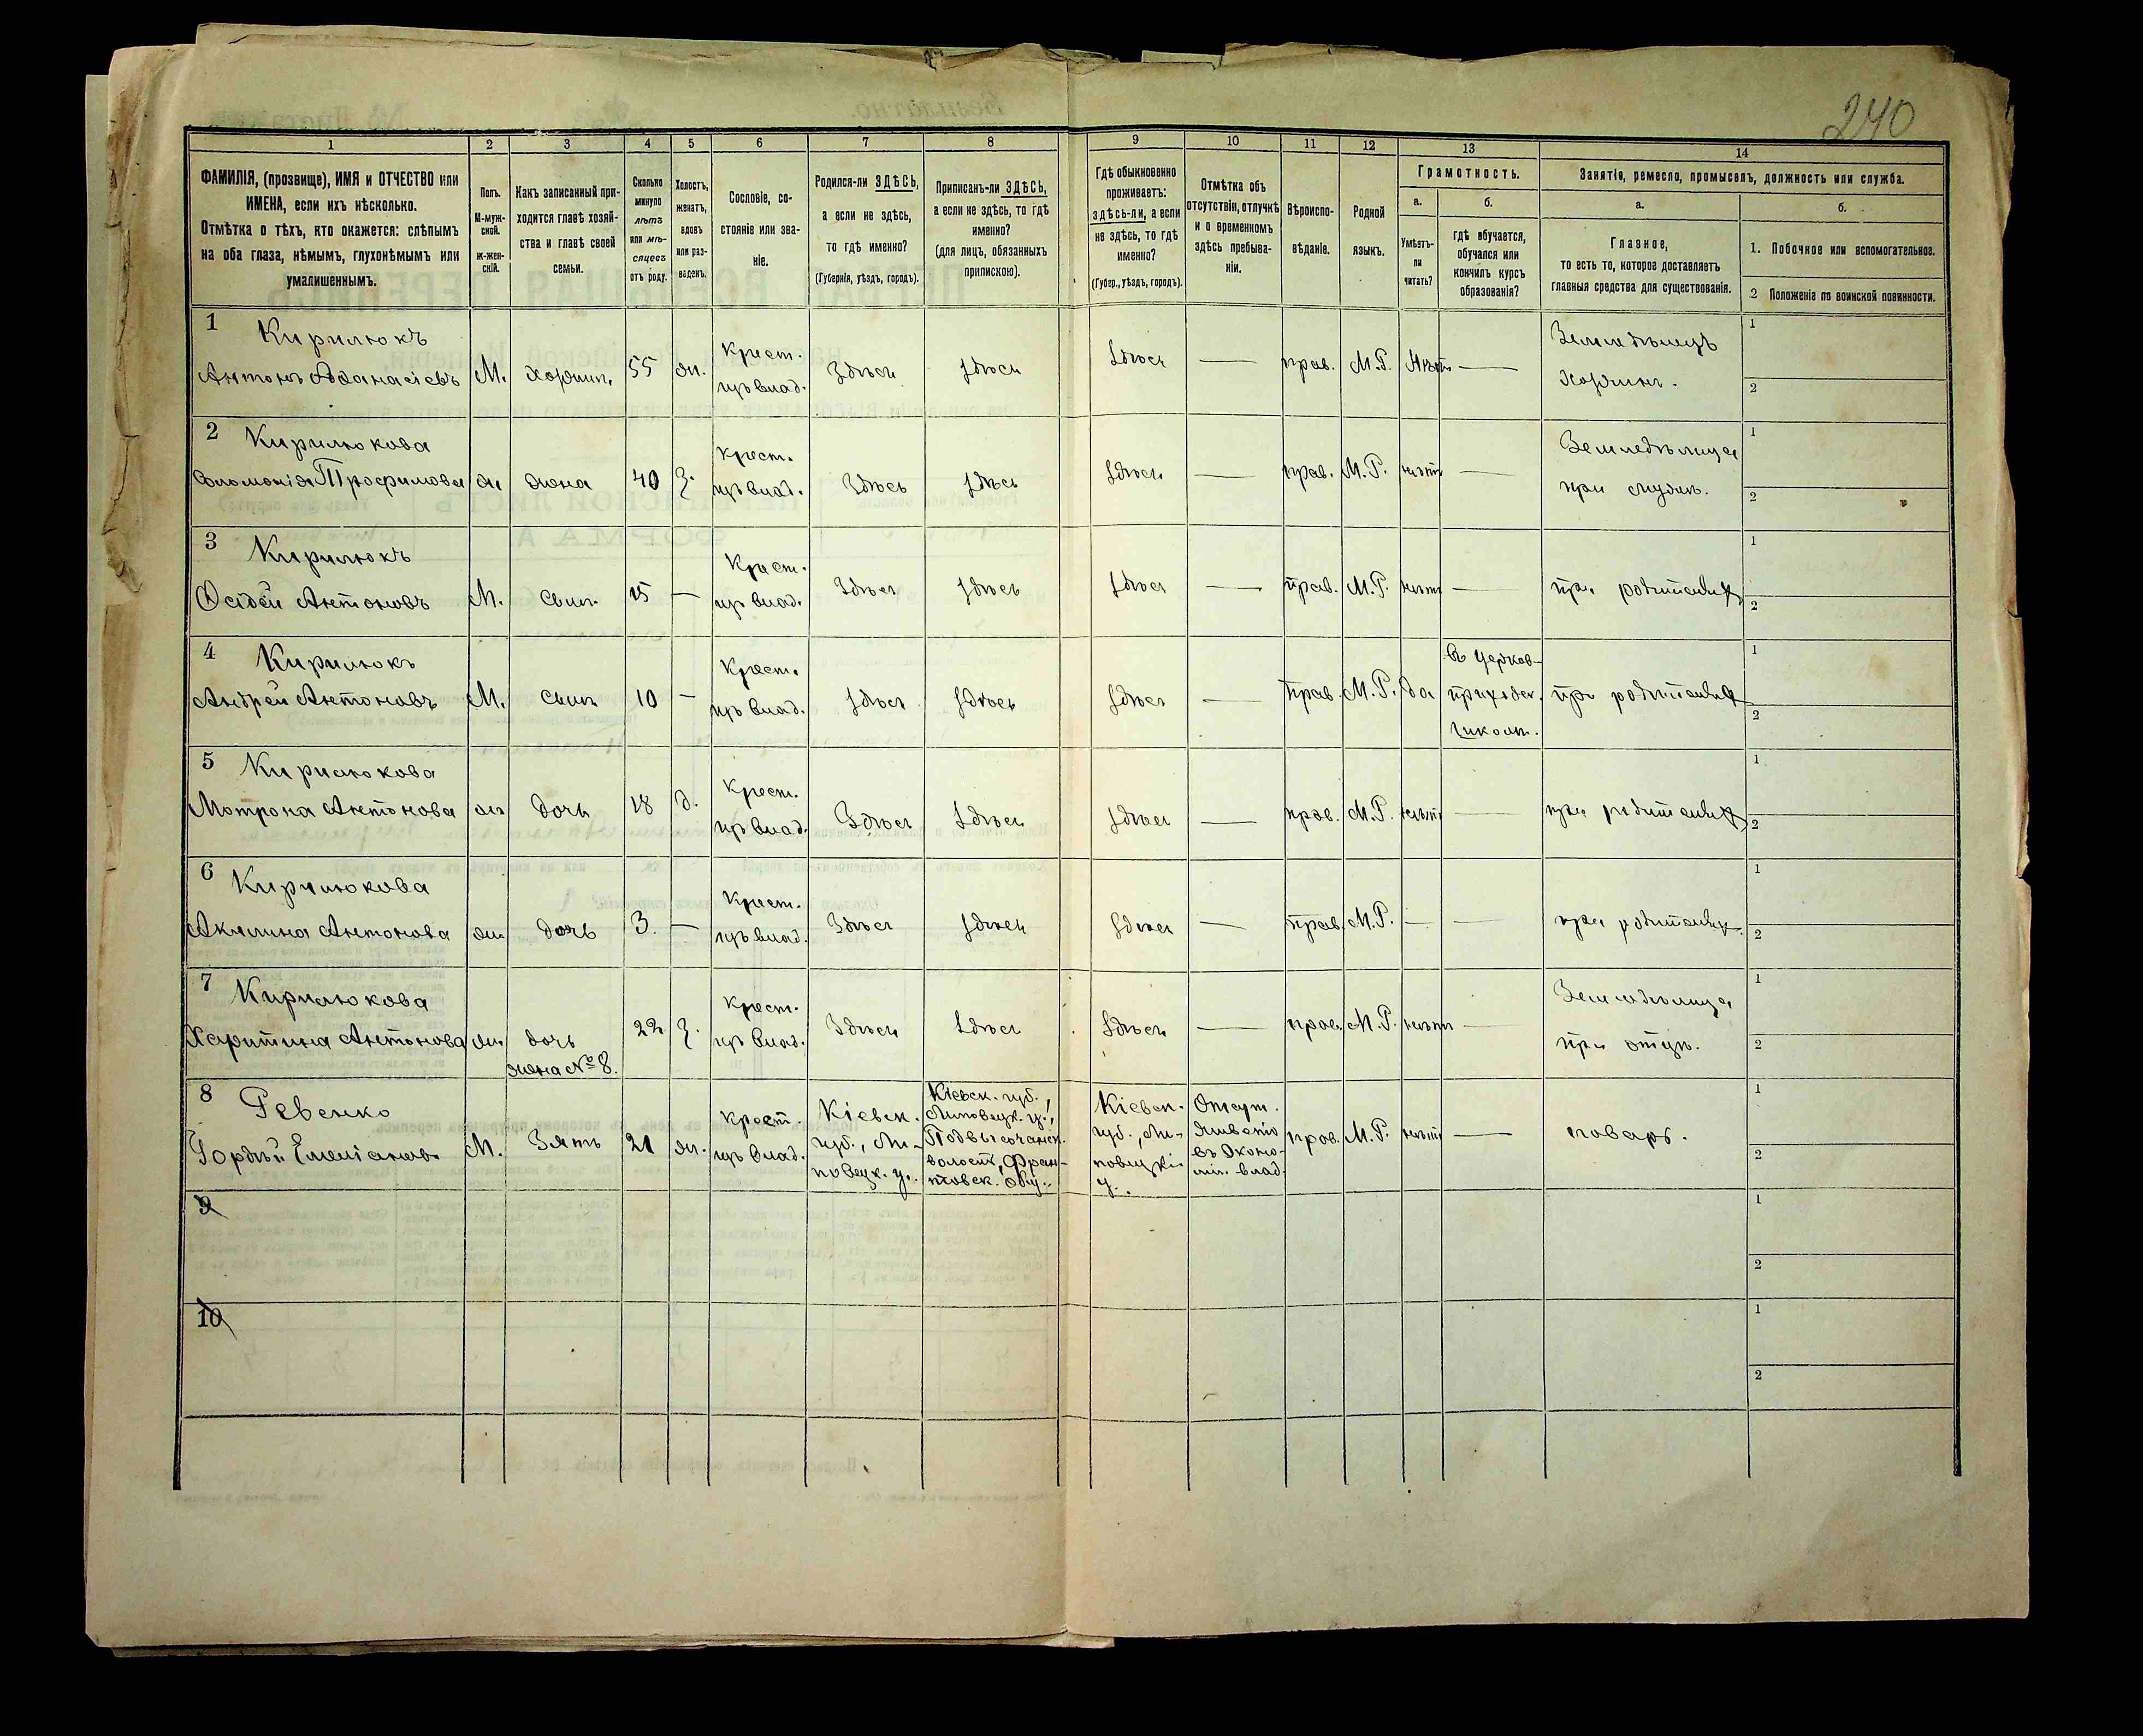 240
1
2
3
4
5
6
7
8
9
10
11
12
13
14
ФАМИЛІЯ, (прозвище), ИМЯ и ОТЧЕСТВО или
ИМЕНА, если ихъ нѣсколько.
Отмѣтка о тѣхъ, кто окажется: слѣпымъ
на оба глаза, нѣмымъ, глухонѣмымъ или
умалишеннымъ.
Полъ.
М-муж-
ской.
Ж-жен-
скій.
Какъ записанный при-
ходится главѣ хозяй-
ства и главѣ своей
семьи.
Сколько
минуло
лѣтъ
или мѣ-
сяцевъ
отъ роду.
Холостъ,
женатъ,
вдовъ
или раз-
веденъ.
Сословіе, со-
стояніе или зва-
ніе.
Родился-ли ЗДѢСЬ,
а если не здѣсь,
то гдѣ именно?
(Губернія, уѣздъ, городъ).
Приписанъ-ли ЗДѢСЬ,
а если не здѣсь, то гдѣ
именно?
(для лицъ, обязанныхъ
припискою).
Гдѣ обыкновенно
проживаетъ:
здѣсь-ли, а если
не здѣсь, то гдѣ
именно?
(Губер., уѣздъ, городъ).
Отмѣтка объ
отсутствіи, отлучкѣ
и о временномъ
здѣсь пребыва-
ніи.
Вѣроиспо-
вѣданіе.
Родной
языкъ.
Грамотность.
а.
Умѣетъ-
ли
читать?
б.
гдѣ обучается,
обучался или
кончилъ курсъ
образованія?
Занятіе, ремесло, промыселъ, должность или служба.
а.
Главное,
то есть то, которое доставляетъ
главныя средства для существованія.
б.
1. Побочное или вспомогательное.
2 Положеніе по воинской повинности.
1 Кирилюкъ
Антонъ Аѳанасіевъ
М.
хозяин.
55
жн.
Крест.
изъ влад.
Здѣсь
здѣсь
здѣсь
—
прав.
М.Р.
Нѣтъ
—
Земледѣлецъ
хозяинъ.
1
2
2 Кирилюкова
Соломонія Трофимова
ж
жена
40
з.
Крест.
изъ влад.
Здѣсь
здѣсь
здѣсь
—
прав.
М.Р.
нѣтъ
—
Земледѣлица
при мужѣ.
1
2
3 Кирилюкъ
Антоновъ
М.
сынъ
15
—
Крест.
изъ влад.
Здѣсь
здѣсь
здѣсь
—
прав.
М.Р.
нѣтъ
—
при родителяхъ
1
2
4 Кирилюкъ
Андрей Антоновъ
М.
сынъ
10
—
Крест.
изъ влад.
здѣсь
здѣсь
здѣсь
—
прав.
М.Р.
да
въ церков-
приходск.
школѣ.
при родителяхъ
1
2
5 Кирилюкова
Мотрона Антонова
ж
дочь
18
д.
Крест.
изъ влад.
Здѣсь
здѣсь
здѣсь
—
прав.
М.Р.
нѣтъ
—
при родителяхъ
1
2
6 Кирилюкова
Акилина Антонова
ж
дочь
3.
—
Крест.
изъ влад.
Здѣсь
здѣсь
здѣсь
—
прав.
М.Р.
—
—
при родителях
1
2
7 Кирилюкова
Харитина Антонова
ж
дочь
жена № 8.
22
з.
Крест.
изъ влад.
Здѣсь
здѣсь
здѣсь
—
прав.
М.Р.
нѣтъ
—
Земледѣлица
при отцѣ.
1
2
8 Ревенко
Гордѣй Емеліановъ
М.
Зять
21
жн.
Крест.
изъ влад.
Кіевск.
губ., Ли-
повецк. у.
Кіевск. губ.,
Липовецк. у.,
Подвысочанск.
волости, Фран-
товск. общ.
Кіевск.
губ., Ли-
повецк.
у.
Отсут.
въ Эконо-
міи влад.
прав.
М.Р.
нѣтъ
—
поваръ.
1
2
9
1
2
10
1
2